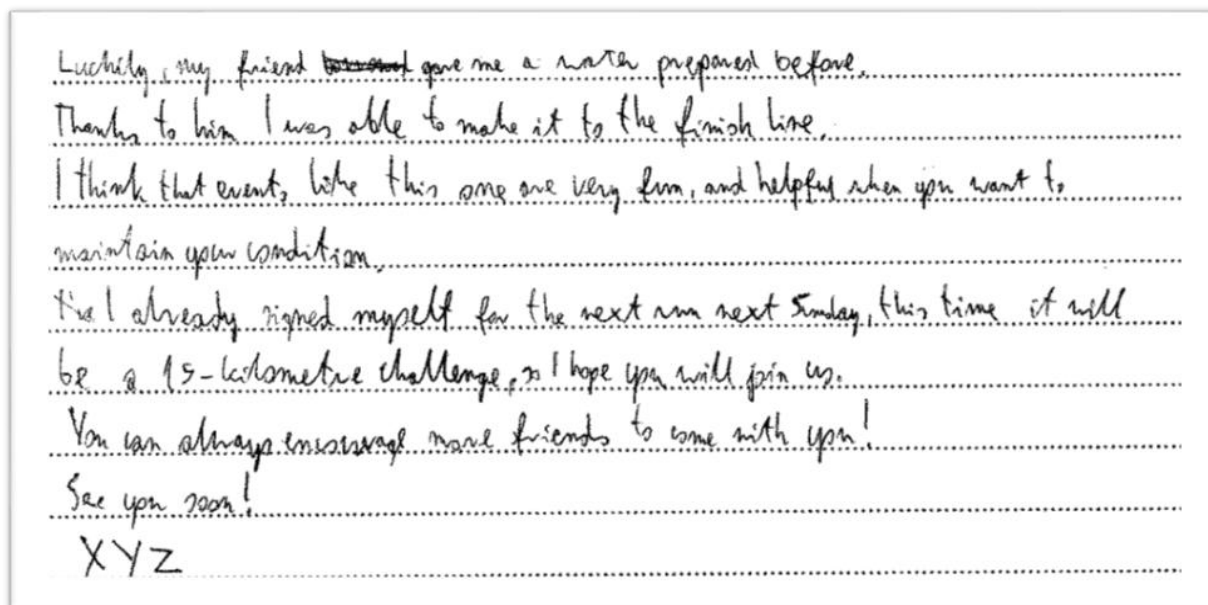 Luckily, my friend gave me a water prepared before.
Thanks to him I was able to make it to the finish line.
I think that events like this one are very fun, and helpful when you want to
maintain your condition.
I already signed myself for the next run next Sunday, this time it will
be a 15-kilometre challenge, so I hope you will join us.
You can always encourage more friends to come with you!
See you soon!
XYZ